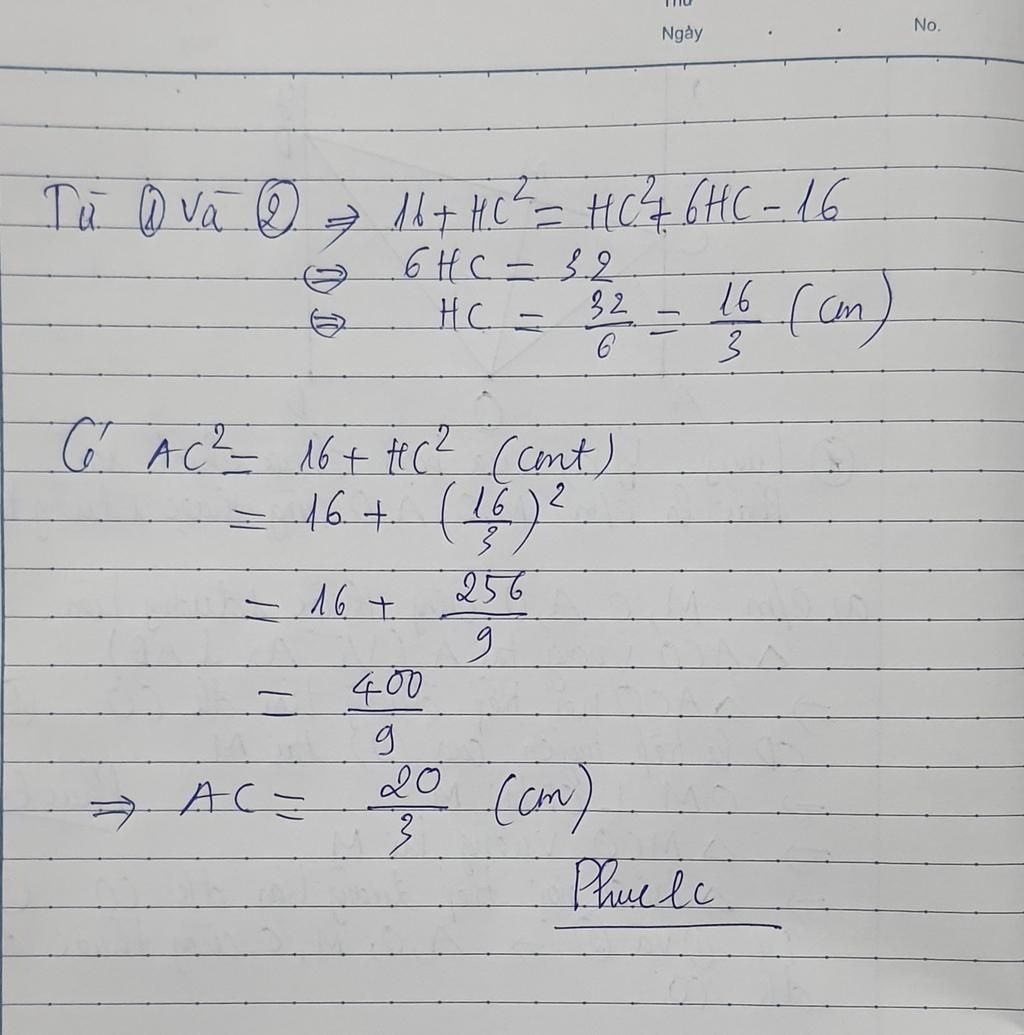 Thứ
Ngày . . No.
Từ ① và ② ⇒ 16 + HC² = HC² + 6HC - 16
⇔ 6HC = 32
⇔ HC = 32/6 = 16/3 (cm)
Có AC² = 16 + HC² (cmt)
= 16 + (16/3)²
= 16 + 256/9
= 400/9
⇒ AC = 20/3 (cm)